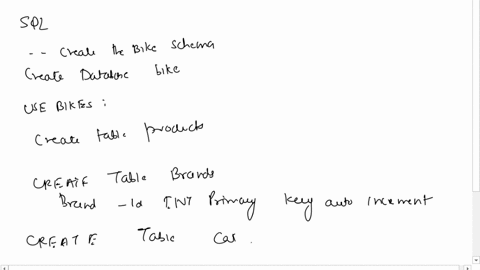 SQL
-- Create the Bike schema
Create Database bike
USE BIKES:
Create table products
CREATE Table Brands
Brand -Id INT Primary key auto increment
CREATE Table Cat